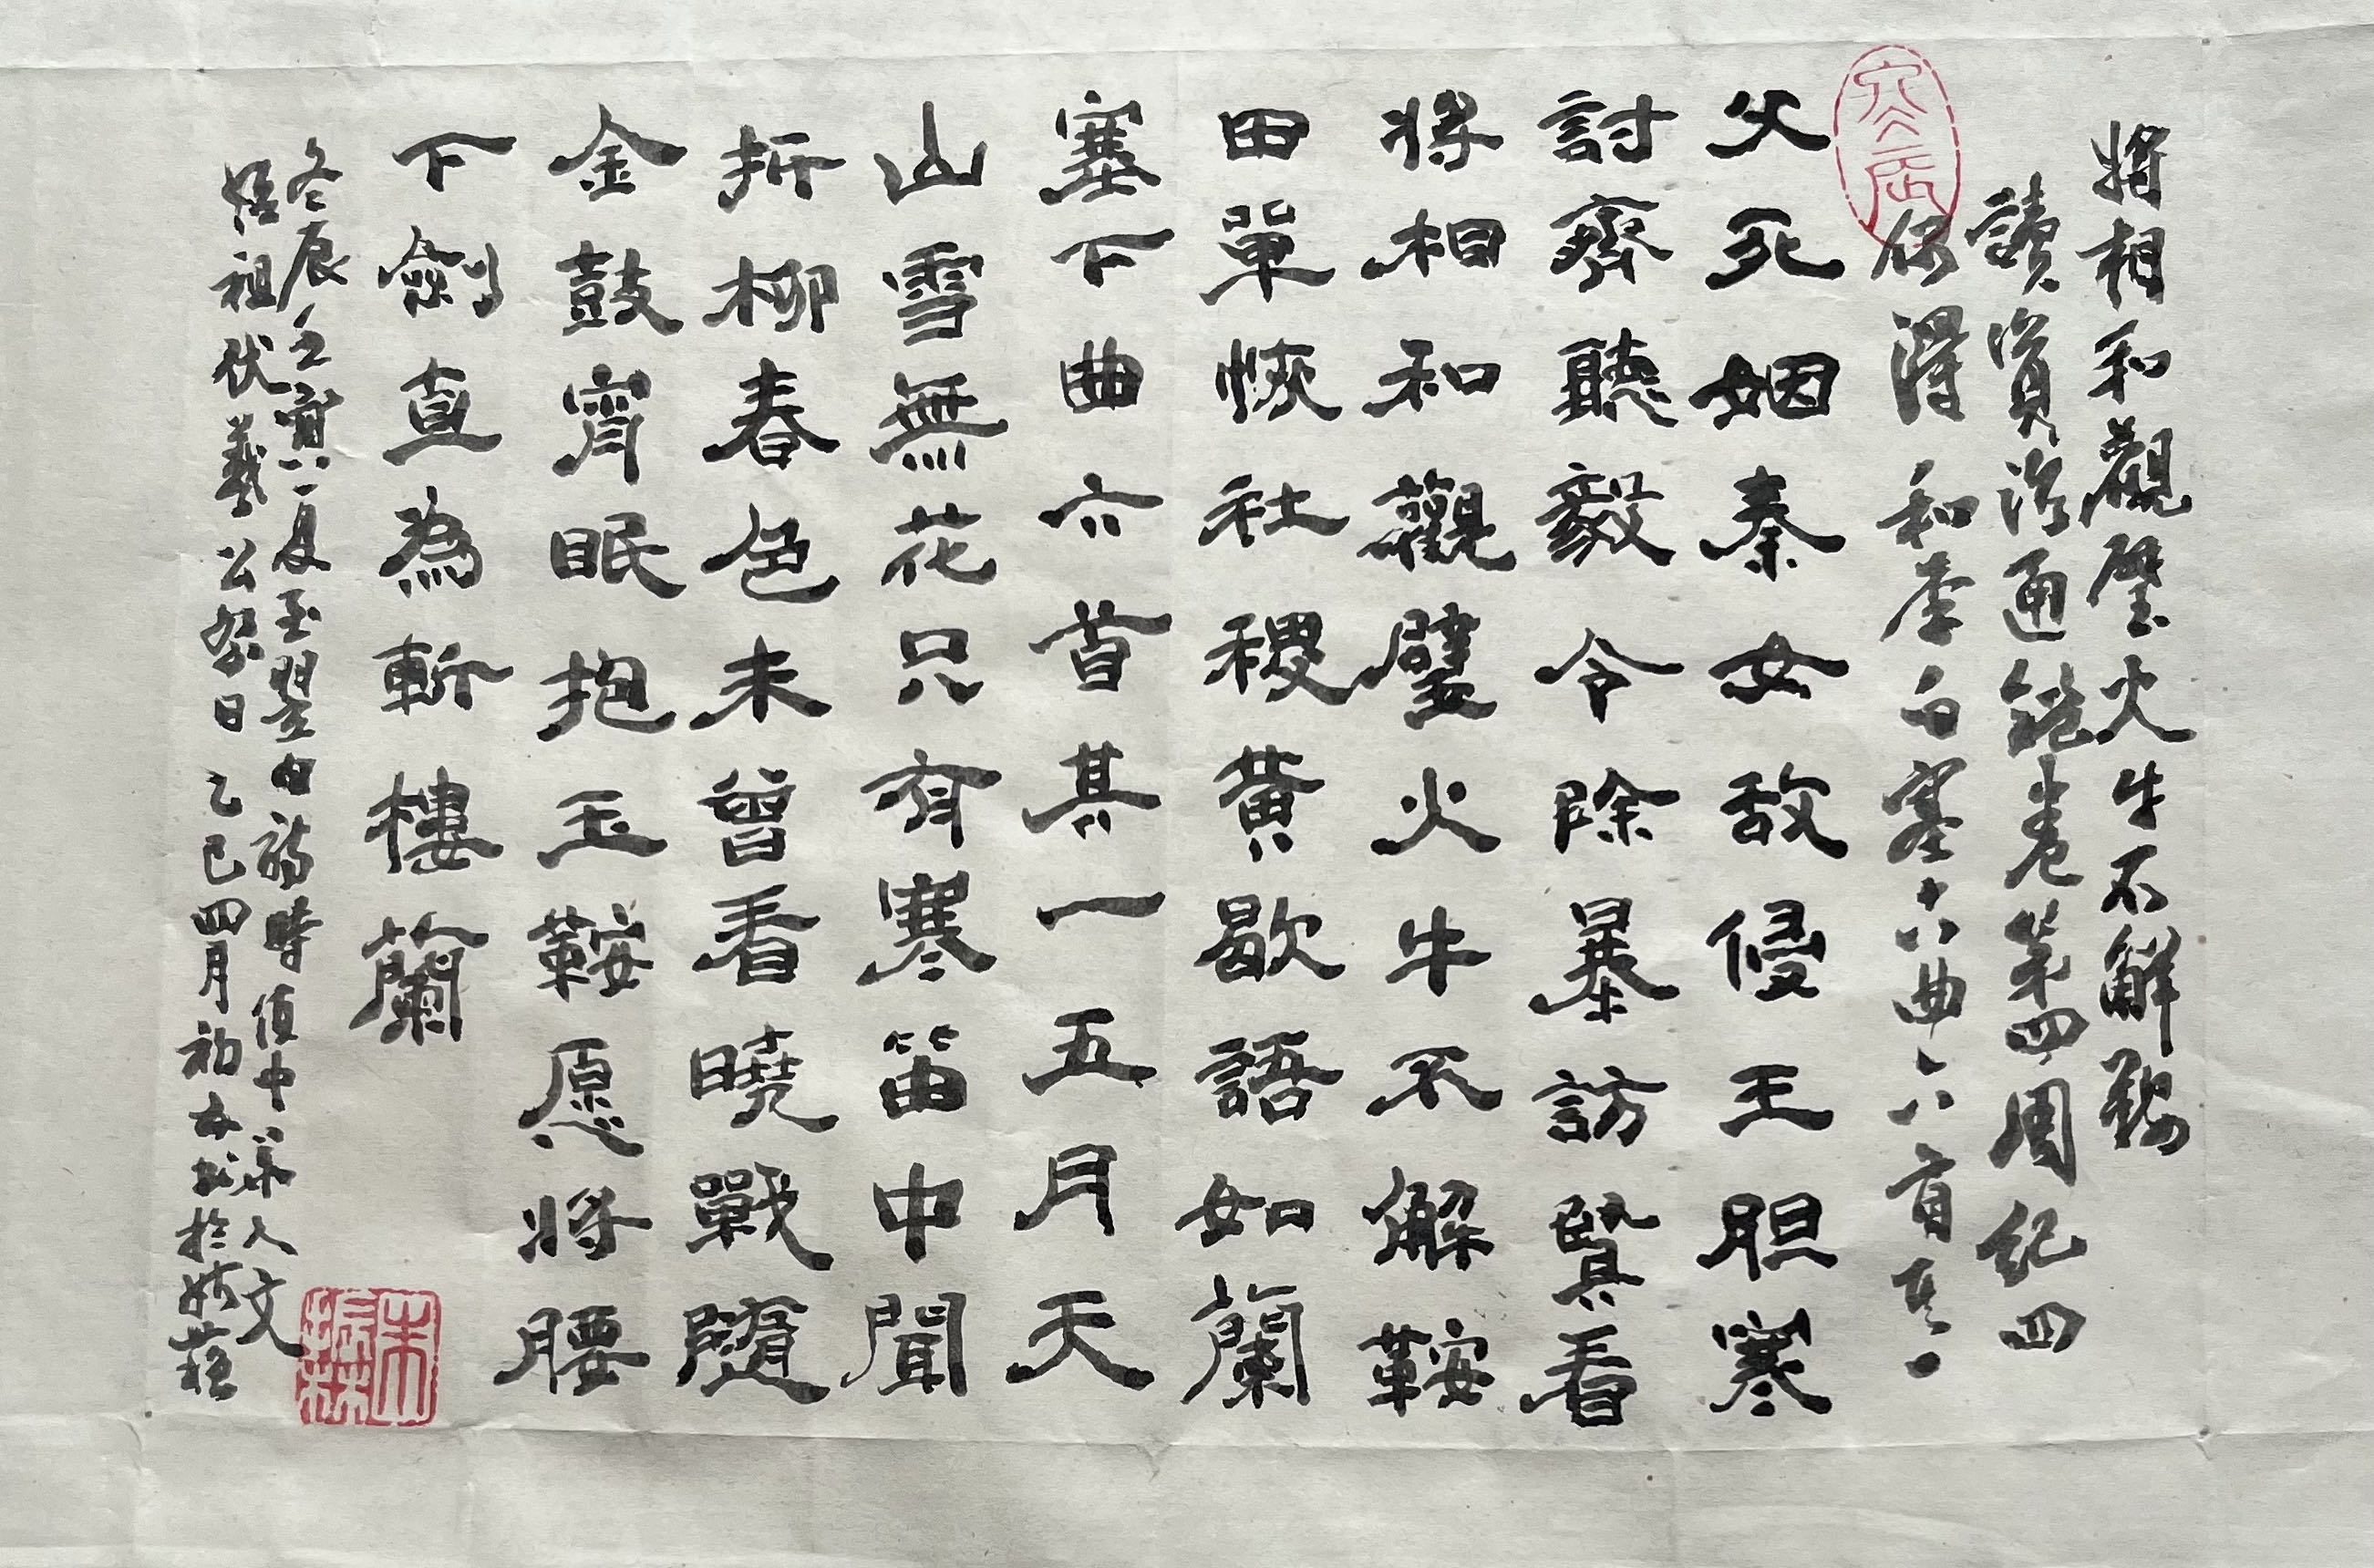 將相和觀璧火牛不解鞍
讀資治通鑑卷第四周紀四
偶得和李白塞下曲六首其一
父死姻秦女敌侵王胆寒
討齊聽毅令除暴訪賢看
將相和觀璧火牛不解鞍
田單恢社稷黄歇語如蘭
塞下曲六首其一五月天
山雪無花只有寒笛中聞
折柳春色未曾看曉戰隨
金鼓宵眠抱玉鞍愿将腰
下劍直為斬樓蘭
冬辰壬寅夏至翌日 時值中華人文
始祖伏羲公祭日乙巳四月 於姑蘇